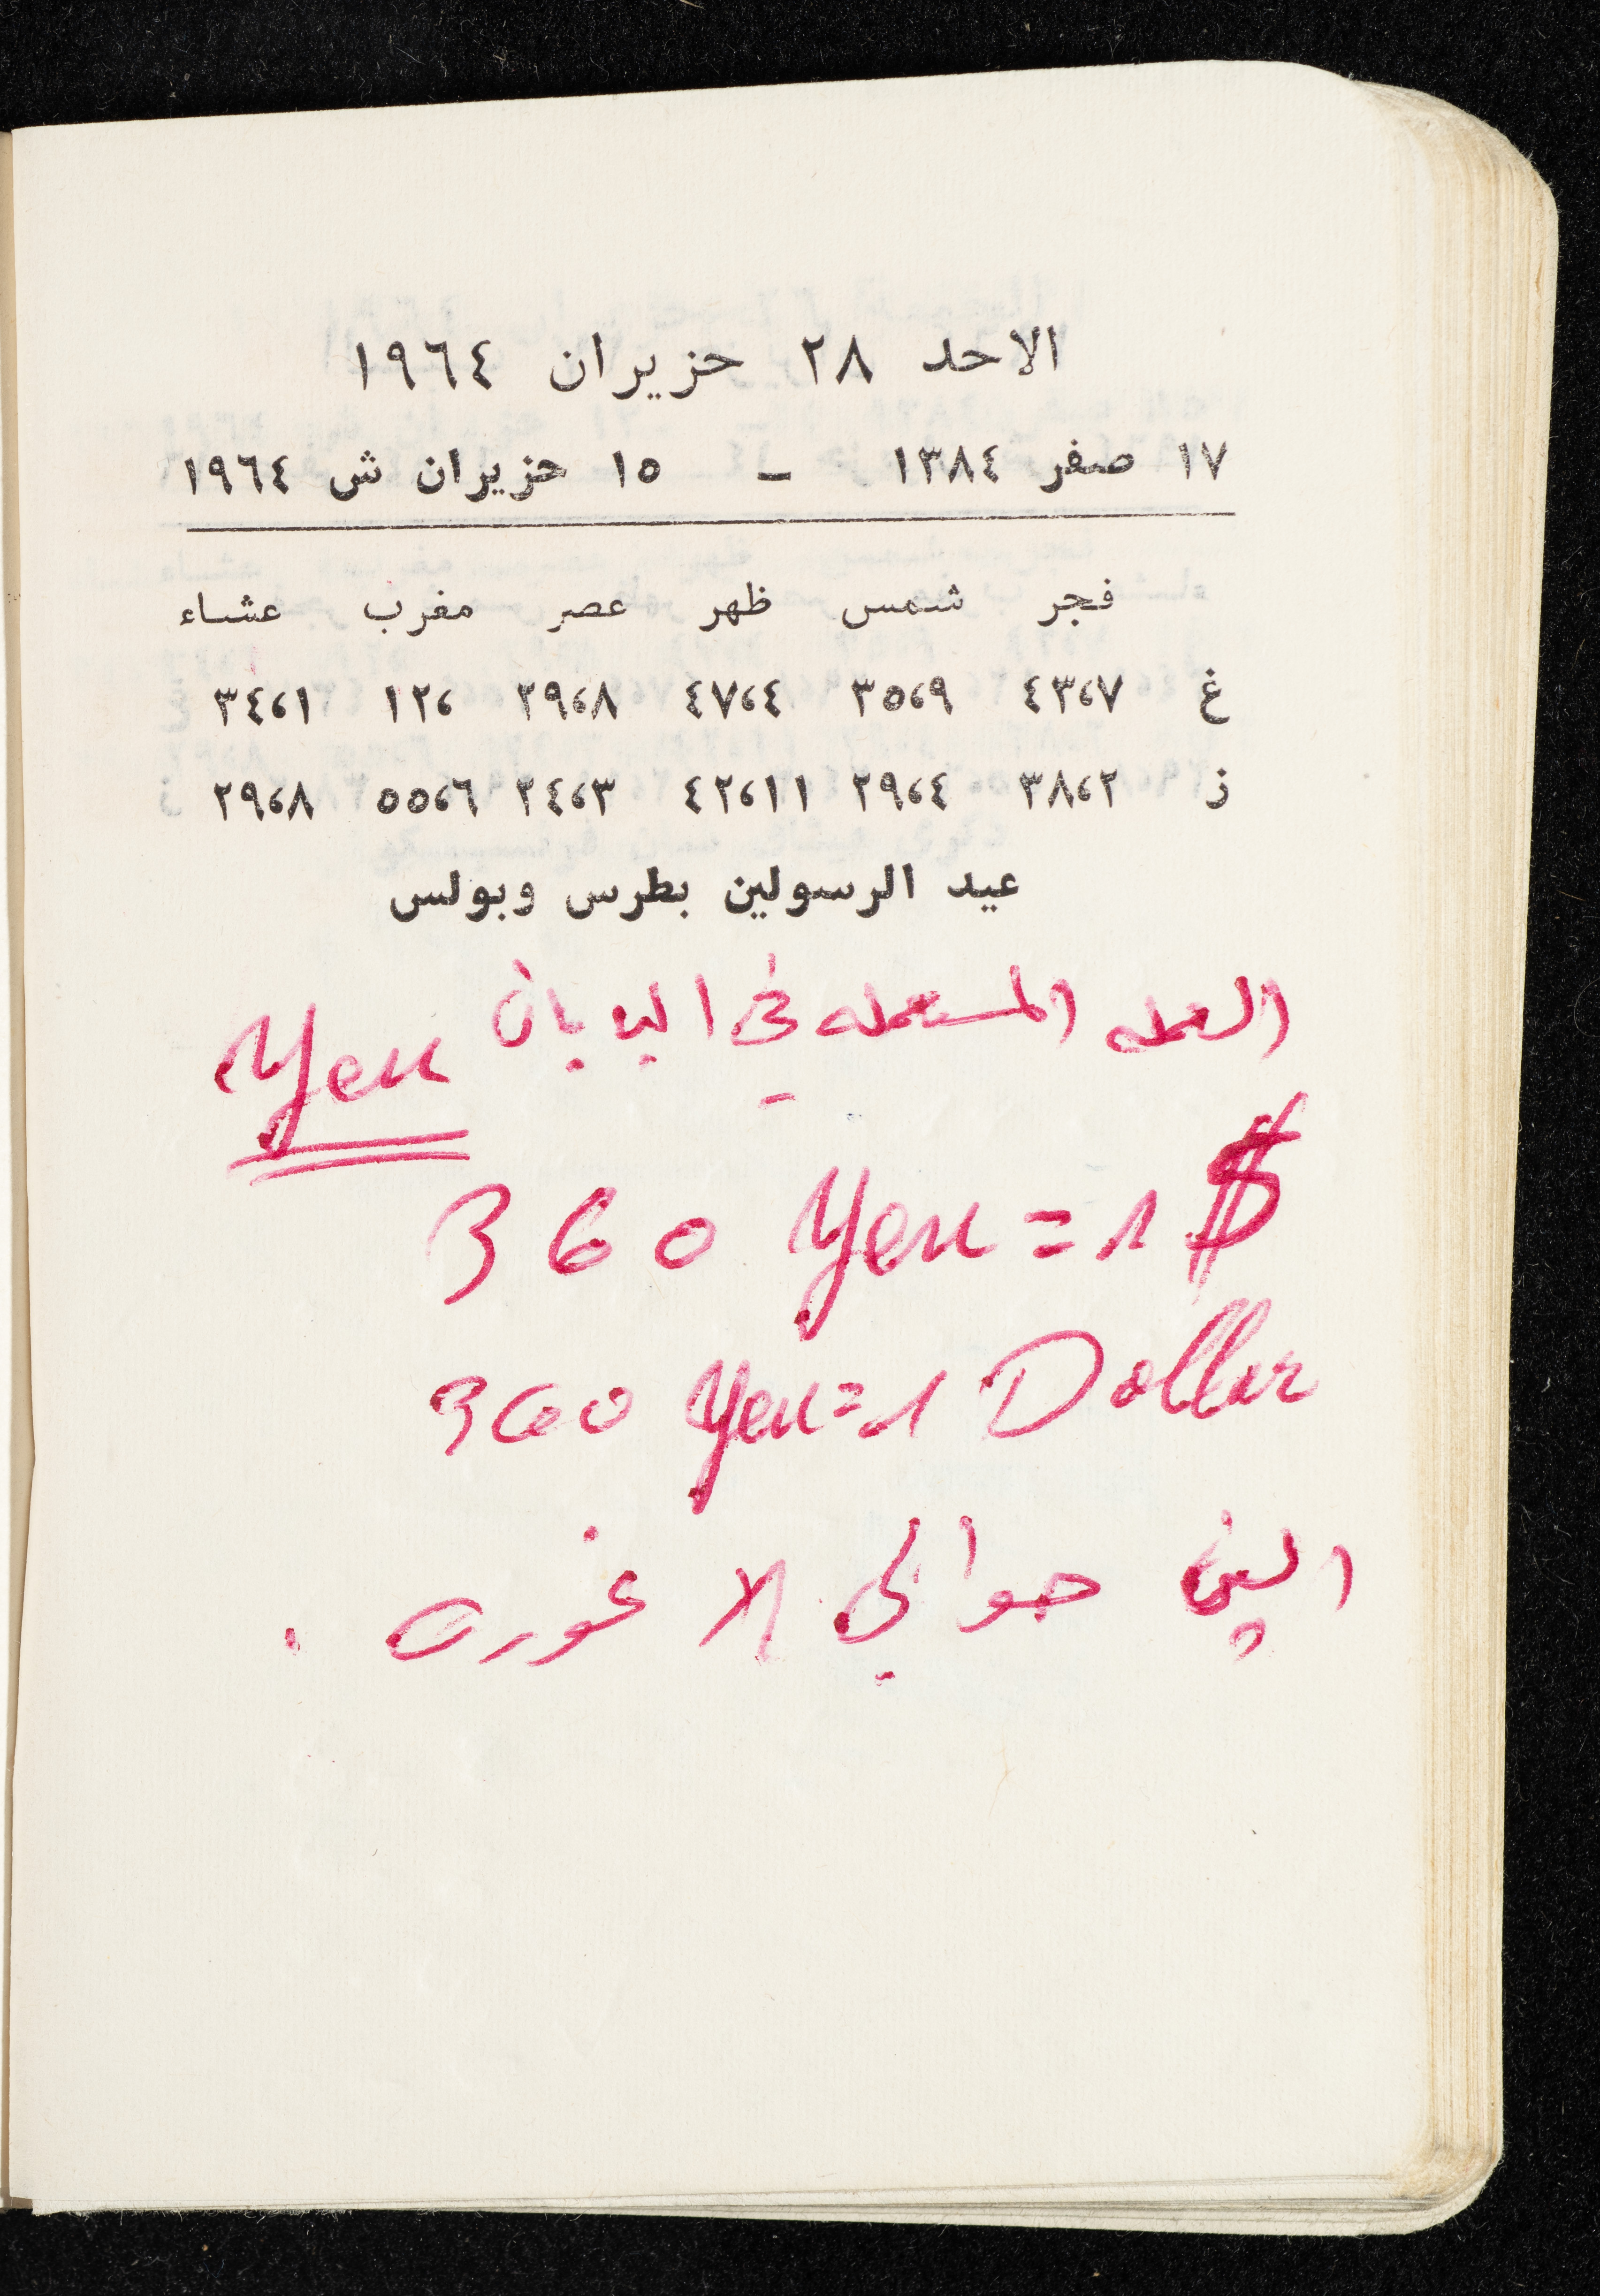 الاحد ٢٨ حزيران ١٩٦٤
١٧ صفر ١٣٨٤ – ١٥ حزيران ش ١٩٦٤
فجر شمس ظهر عصر مغرب عشاء
غ ٤٣،٧ ٣٥،٩ ٤٧،٤ ٢٩،٨ ١٢، ٣٤،١
ز ٣٨،٢ ٢٩،٤ ٤٢،١١ ٢٤،٣ ٥٥،٦ ٢٩،٨
عيد الرسولين بطرس وبولس
العمله المستعمله في اليابان Yen
360 Yen = 1 $
360 Yen = 1 Dollar
الين حوالي الاغوره .